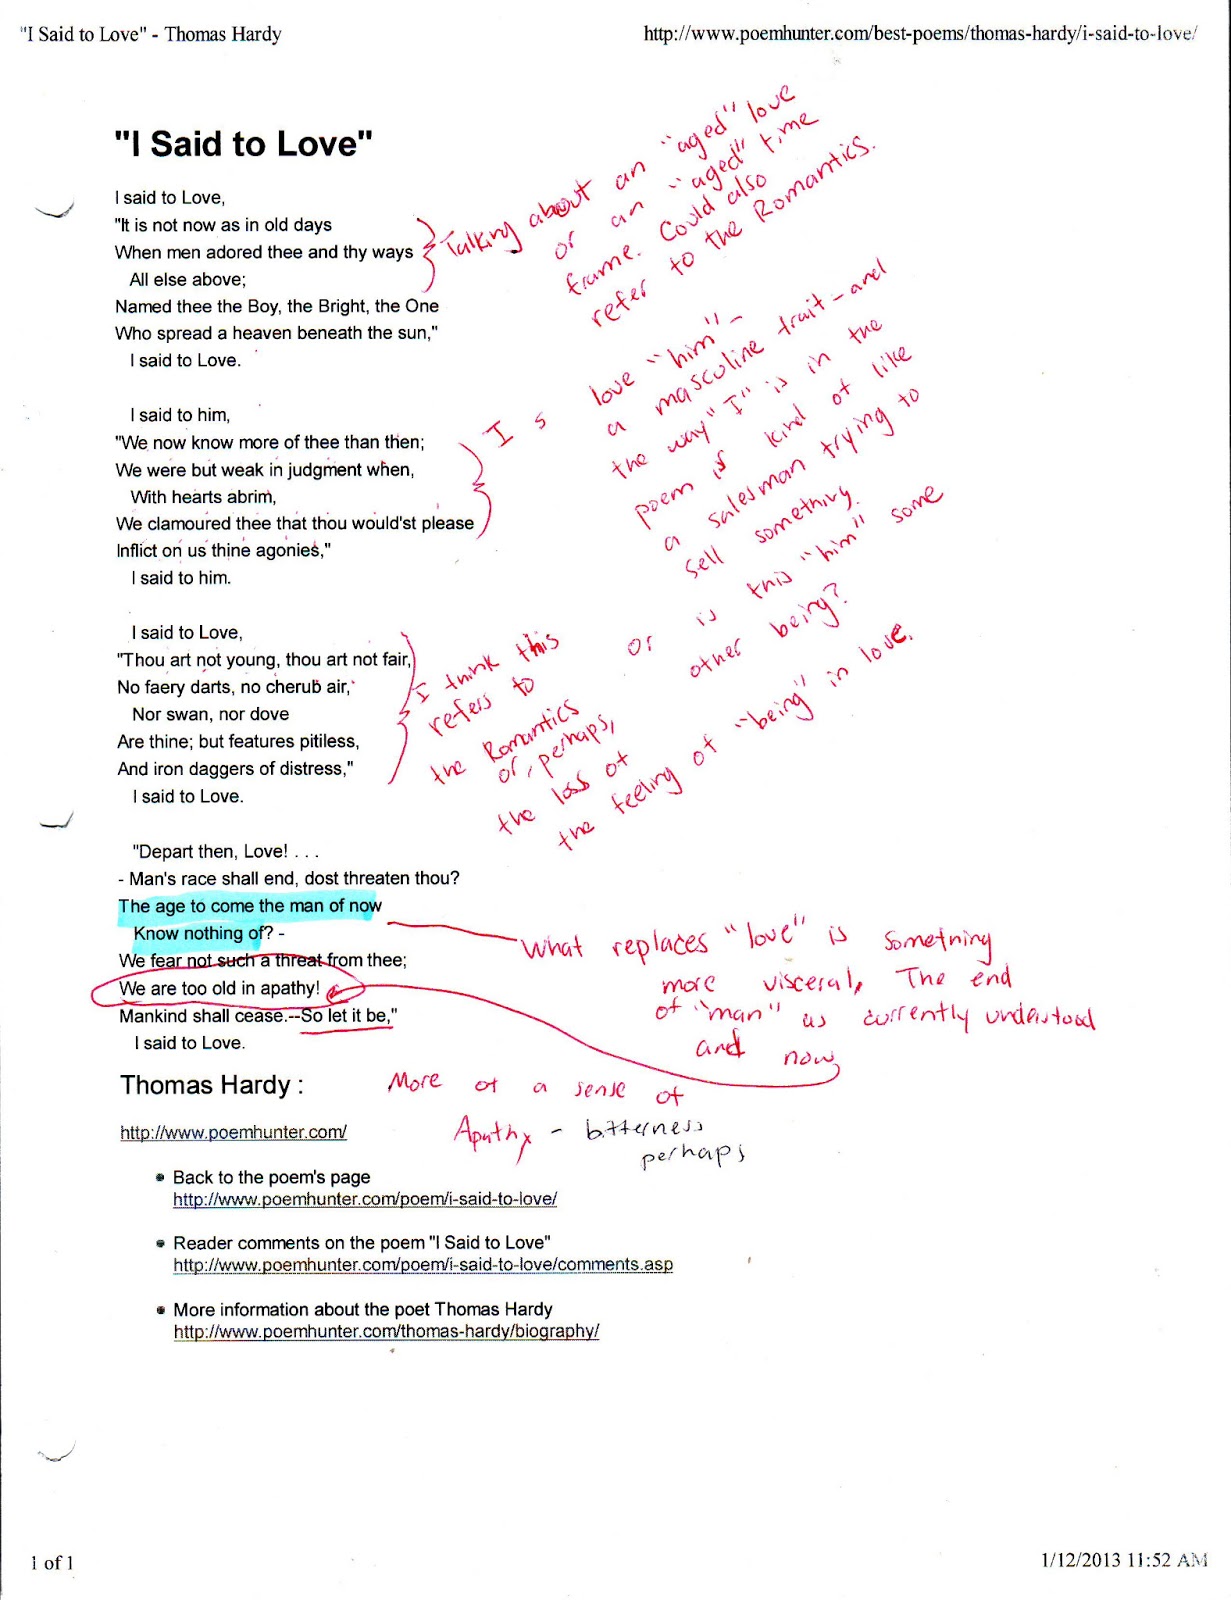 "I Said to Love" - Thomas Hardy
http://www.poemhunter.com/best-poems/thomas-hardy/i-said-to-love/
"I Said to Love"
I said to Love,
"It is not now as in old days
When men adored thee and thy ways
All else above;
Named thee the Boy, the Bright, the One
Who spread a heaven beneath the sun,"
I said to Love.
Talking about an "aged" love
or an "aged" time
frame. Could also
refer to the Romantics.
I said to him,
"We now know more of thee than then;
We were but weak in judgment when,
With hearts abrim,
We clamoured thee that thou would'st please
Inflict on us thine agonies,"
I said to him.
Is love "him" –
a masculine trait – and
the way "I" is in the
poem is kind of like
a salesman trying to
sell something.
or is this "him" some
other being?
I said to Love,
"Thou art not young, thou art not fair,
No faery darts, no cherub air,
Nor swan, nor dove
Are thine; but features pitiless,
And iron daggers of distress,"
I said to Love.
I think this
refers to
the Romantics
or, perhaps,
the loss of
the feeling of "being" in love.
"Depart then, Love! . . .
- Man's race shall end, dost threaten thou?
The age to come the man of now
Know nothing of? -
We fear not such a threat from thee;
We are too old in apathy!
Mankind shall cease.--So let it be,"
I said to Love.
What replaces "love" is something
more visceral, The end
of "man" as currently understood
and now
More of a sense of
Apathy – bitterness
perhaps
Thomas Hardy :
http://www.poemhunter.com/
• Back to the poem's page
http://www.poemhunter.com/poem/i-said-to-love/
• Reader comments on the poem "I Said to Love"
http://www.poemhunter.com/poem/i-said-to-love/comments.asp
• More information about the poet Thomas Hardy
http://www.poemhunter.com/thomas-hardy/biography/
1 of 1
1/12/2013 11:52 AM